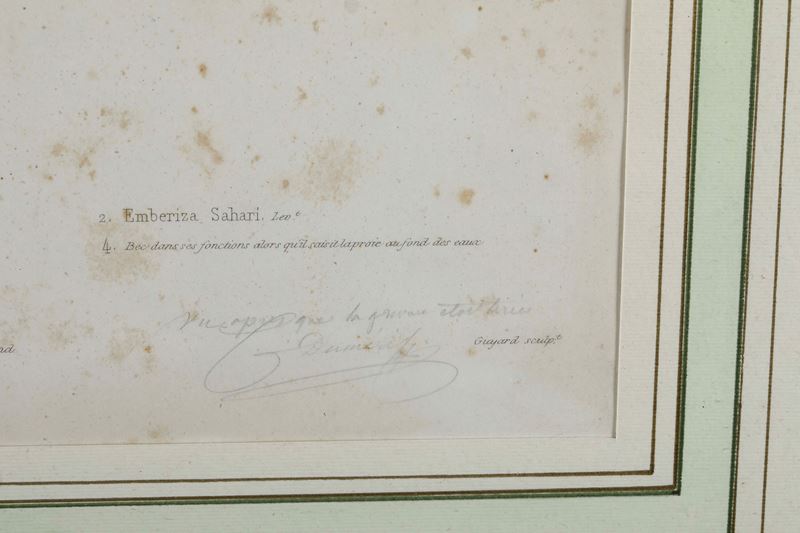 2. Emberiza Sahari. Lev.t
4. Bec dans ses fonctions alors qu'il saisit la proie au fond des eaux
Vu après que la gravure étoit
Guyard sculp.t